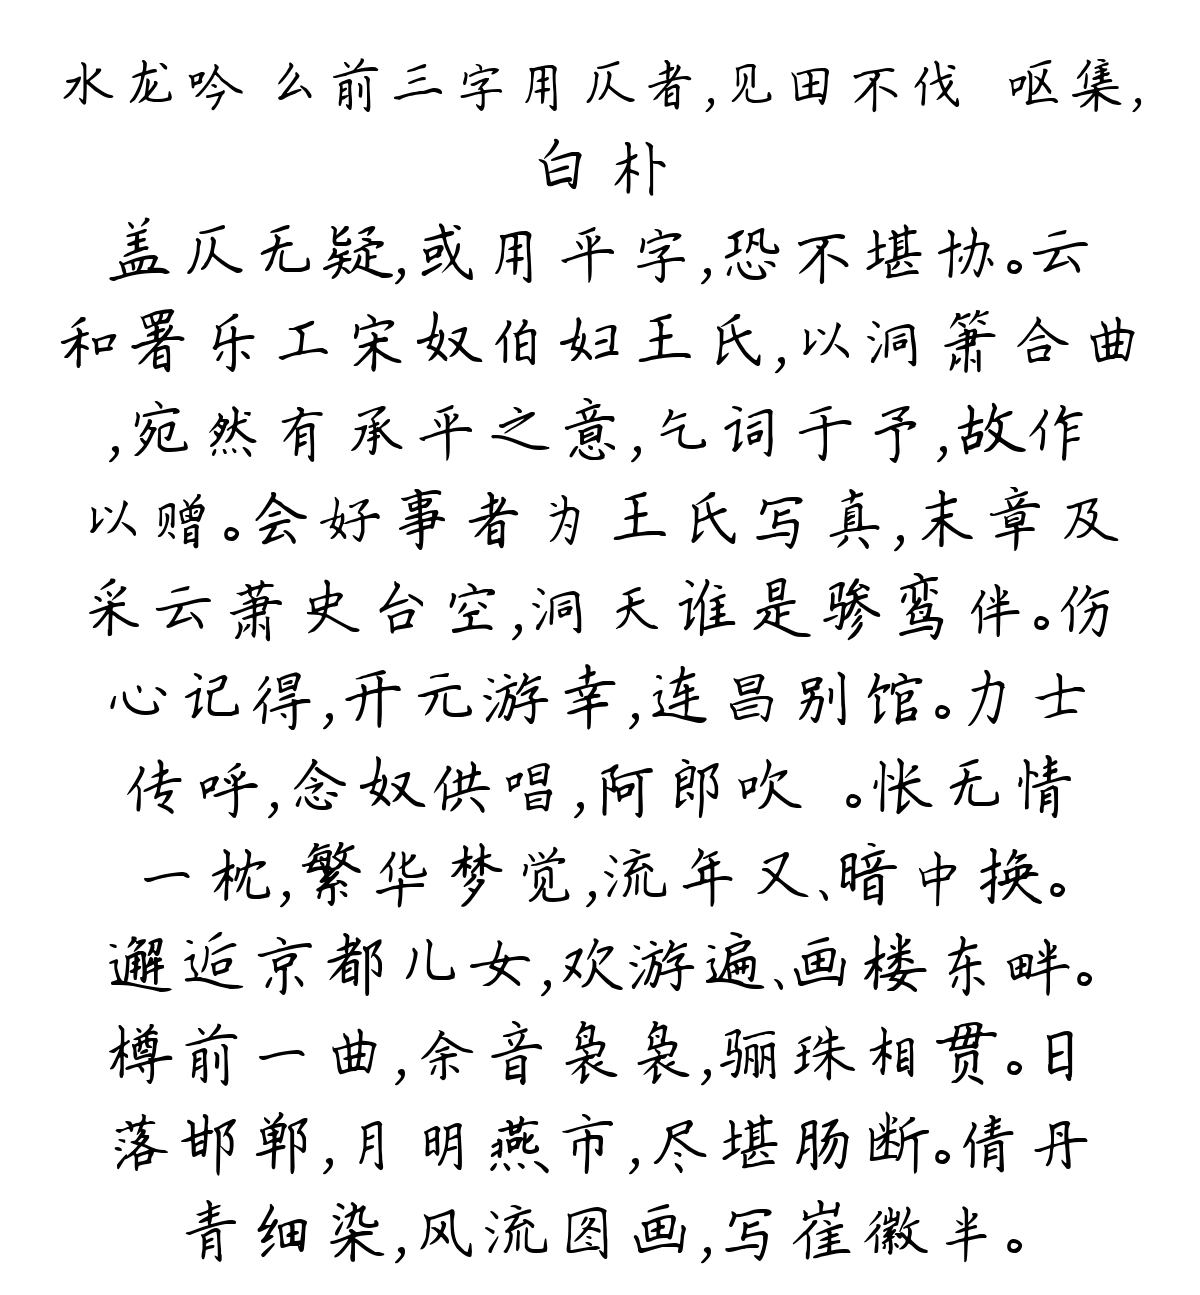 水龙吟 么前三字用仄者,见田不伐 呕集,
白朴
盖仄无疑,或用平字,恐不堪协。云
和署乐工宋奴伯妇王氏,以洞箫合曲
,宛然有承平之意,乞词于予,故作
以赠。会好事者为王氏写真,末章及
采云萧史台空,洞天谁是骖鸾伴。伤
心记得,开元游幸,连昌别馆。力士
传呼,念奴供唱,阿郎吹 。怅无情
一枕,繁华梦觉,流年又、暗中换。
邂逅京都儿女,欢游遍、画楼东畔。
樽前一曲,余音袅袅,骊珠相贯。日
落邯郸,月明燕市,尽堪肠断。倩丹
青细染,风流图画,写崔徽半。